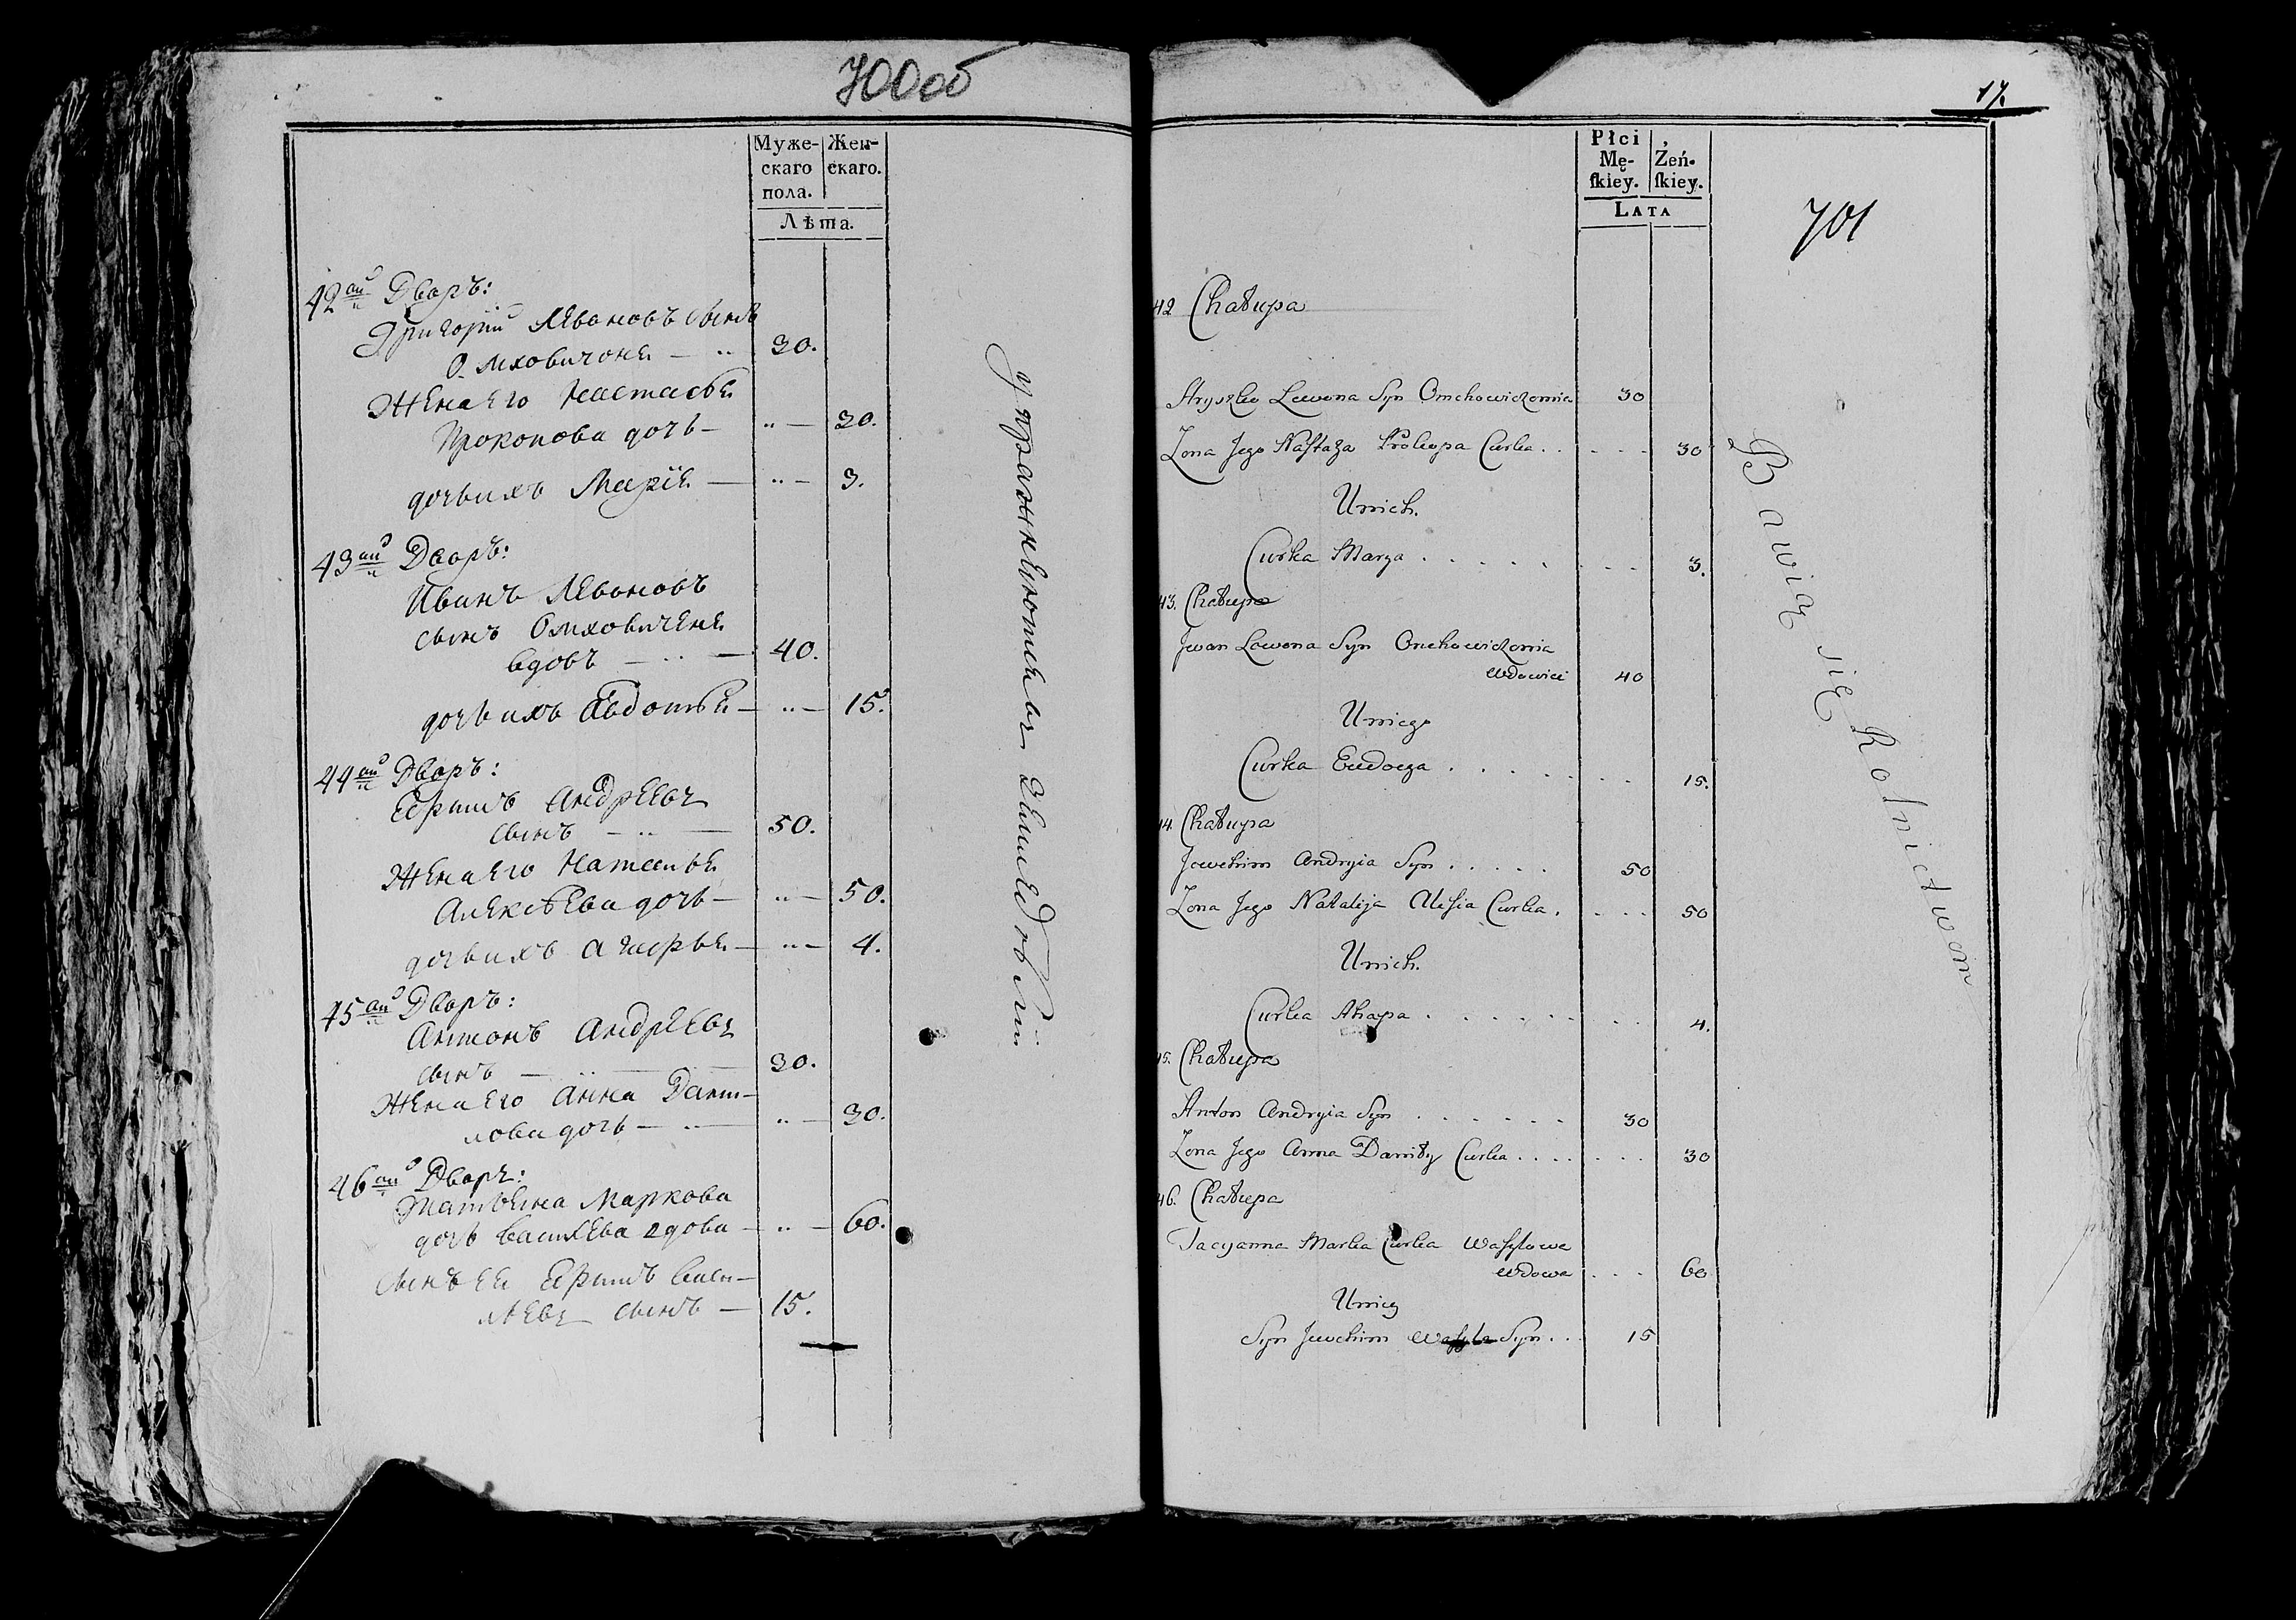 700об
Муже-
скаго
пола.
Жен-
скаго.
Лѣта.
42ай Дворъ:
Григорiй Левоновъ сынъ
Омховичоня — 30.
Жена его Настасья
Прокопова дочь — 30.
дочь ихъ Марiя — 3.
43ай Дворъ:
Иванъ Левоновъ
сынъ Омховиченя
вдовъ — 40.
дочь ихъ Авдотья — 15.
44ай Дворъ:
Ефимъ Андреевъ
сынъ — 50.
Жена его Наталья
Алексѣева дочь — 50.
дочь ихъ Агафья — 4.
45ай Дворъ:
Антонъ Андреевъ
сынъ — 30.
Жена его Анна Дани-
лова дочь — 30.
46ай Дворъ:
Татьяна Маркова
дочь Василева вдова — 60.
сынъ ея Ефимъ Васи-
лѣевъ сынъ — 15.
упражняются въ Земледѣлiи
17.
701
Płci
Mę-
ſkiey.
Żeń-
ſkiey.
LATA
42 Chałupa
Hryszko Lewona Syn Omchowiczonia 30
Żona Jego Naſtaza Prokopa Curka . . . . . 30
U nich.
Curka Marya . . . . . . . . . 3.
43. Chałupa
Jwan Lewona Syn Omchowiczonia
wdowiec 40
U niego
Curka Eudocya . . . . . . . . 15.
44. Chałupa
Jewchim Andryia Syn . . . . . 50
Żona Jego Natalija Aleſia Curka . . . . 50
U nich.
Curka Ahapa . . . . . . . . 4.
45. Chałupa
Anton Andryia Syn . . . . . . 30
Żona Jego Anna Daniły Curka . . . . . . 30
46. Chałupa
Tacyanna Marka Curka Waſylowa
wdowa . . . 60
U niey
Syn Jewchim Waſyla Syn . . . 15
Bawią się Rolnictwem